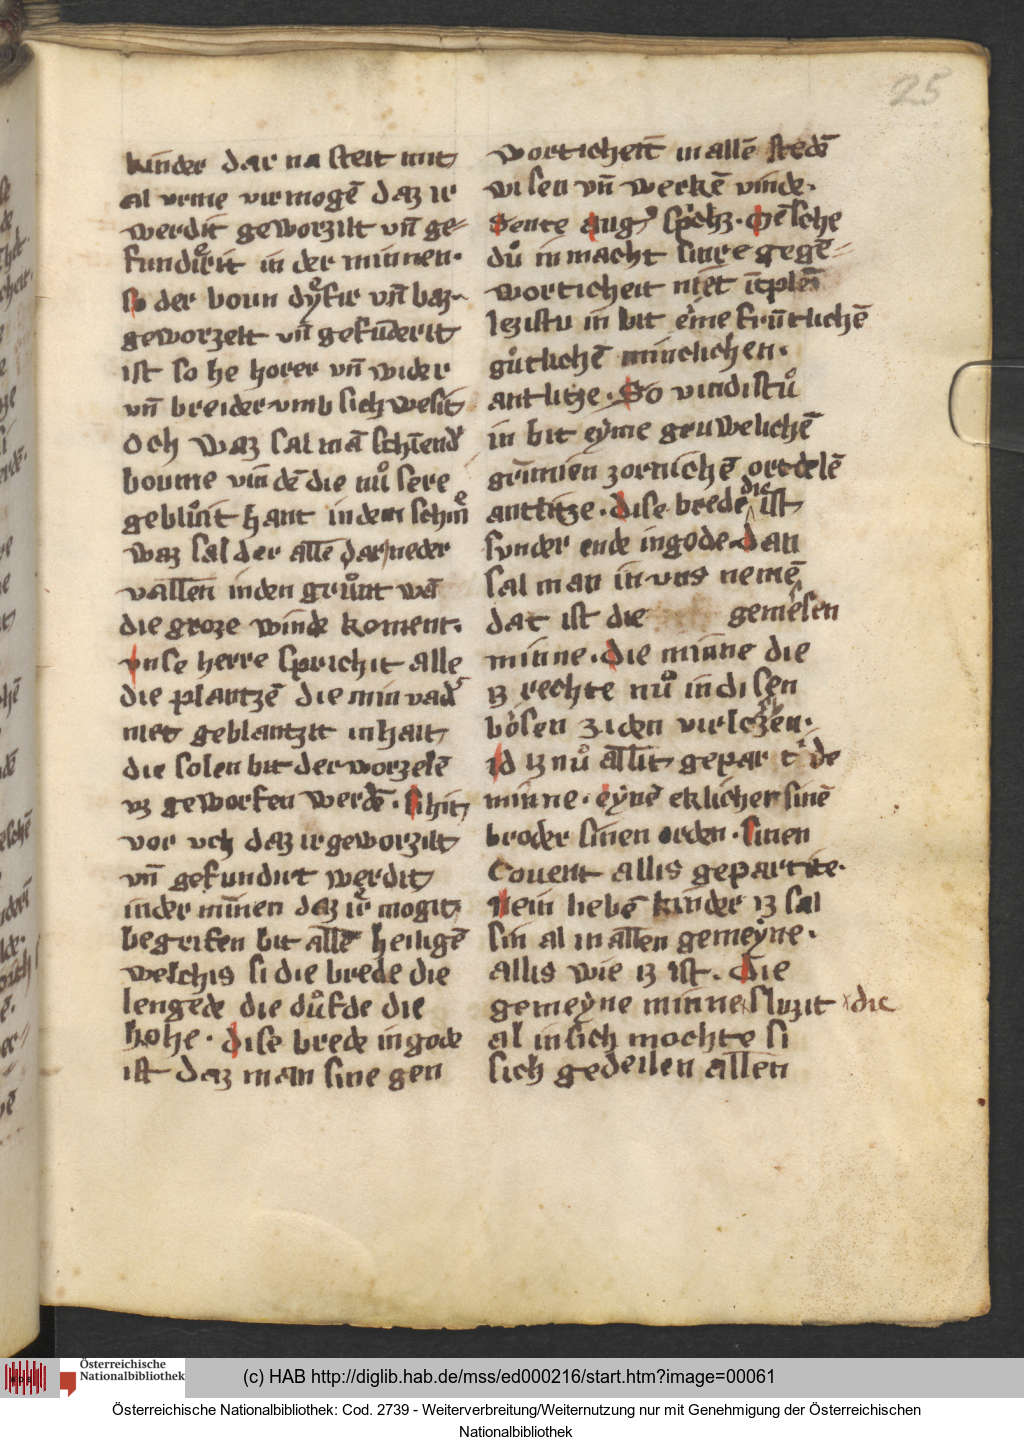 25
kinder dar na steit mit
al urme virmogē daz ir
werdit geworzilt vn̄ ge-
fundirit in der minnen.
so der boun dyfir vn̄ baz
geworzelt vn̄ gefūderit
ist so he horer vn̄ wider
vn̄ breider vmb sich wesit
och waz sal mā schīend'
boume vin dē die nuͦ sere
gebluͦit hant in dem schin
waz sal der allē dar neder
vallen in den gruͦnt wā
die groze winde koment.
vnse herre sprichit alle
die plantzē die min vad'
niet geblantzit in hait
die solen bit der worzelē
vz geworfen werdē. sihit
vor vch daz ir geworzilt
vn̄ gefundirt werdit
in der minnen daz ir mogit
begrifen bit allē heiligē
welchis si die brede die
lengede die duͦfde die
hohe. dise brede in gode
ist daz man sine gen
worticheit in allē stedē
wisen vn̄ werkē vinde.
Sente aug' sp'chz. Mēsche
duͦ in macht sinre gegē-
worticheit niet
lezistu in bit eime frūtlichē
guͦtlichē minclichen.
antlitze. So vindistuͦ
in bit eyme gruwelichē
grimen zornichē ortdelē
antlitze. dise brede die ist
sunder ende in gode. dan
sal man in vns nemē
dat ist die gemeȳsen
minne. die minne die
iz rechte nuͦ in disen
bosen ziden virloschen.
id iz nuͦ allit gepar t' de
minne. eynē eklicher sinē
broder sinen orden. sinen
Couent allis gepartite.
Nein liebē kinder iz sal
sin al in allen gemeyne.
allis wie iz ist. die
gemeyne minne sluzit die
al in sich mochte si
sich gedeilen allen
Österreichische
Nationalbibliothek
(c) HAB http://diglib.hab.de/mss/ed000216/start.htm?image=00061
Österreichische Nationalbibliothek: Cod. 2739 - Weiterverbreitung/Weiternutzung nur mit Genehmigung der Österreichischen
Nationalbibliothek